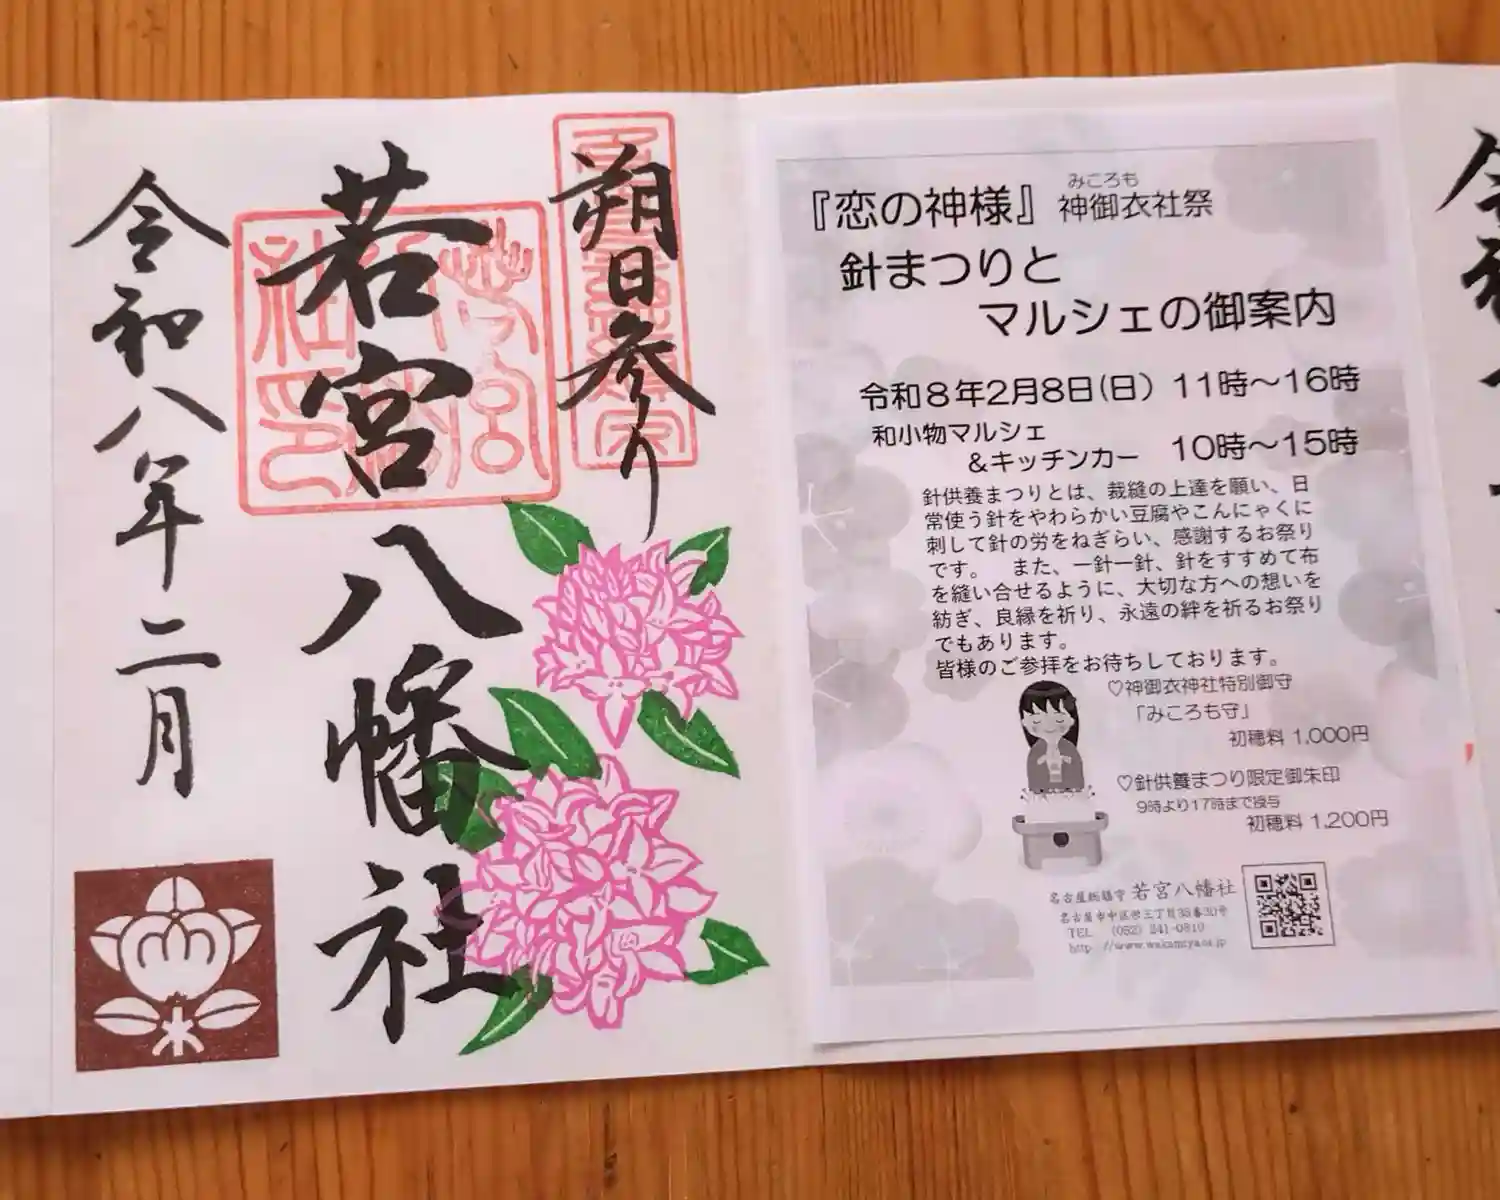 朔日参り
若宮八幡社
令和八年二月
みころも
『恋の神様』神御衣社祭
針まつりと
マルシェの御案内
令和8年2月8日(日) 11時～16時
和小物マルシェ
&キッチンカー 10時～15時
針供養まつりとは、裁縫の上達を願い、日
常使う針をやわらかい豆腐やこんにゃくに
刺して針の労をねぎらい、感謝するお祭り
です。 また、一針一針、針をすすめて布
を縫い合せるように、大切な方への想いを
紡ぎ、良縁を祈り、永遠の絆を祈るお祭り
でもあります。
皆様のご参拝をお待ちしております。
♡神御衣神社特別御守
「みころも守」
初穂料 1,000円
♡針供養まつり限定御朱印
9時より17時まで授与
初穂料 1,200円
名古屋総鎮守 若宮八幡社
名古屋市中区栄三丁目35番30号
TEL (052) 241-0810
http://www.wakamiya.or.jp